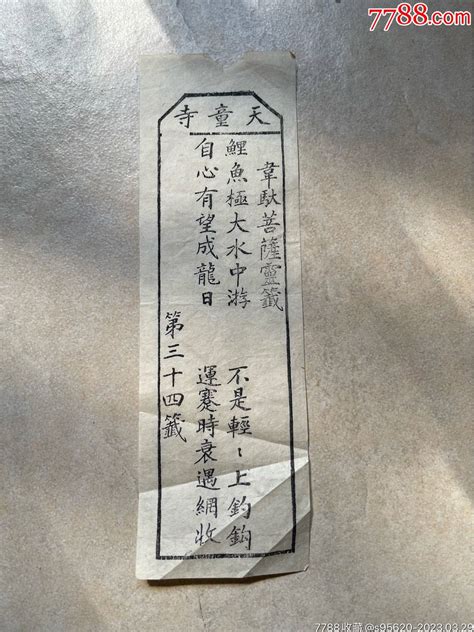 7788.com
天童寺
韋馱菩薩靈籤
鯉魚極大水中游 不是輕〻上釣鈎
自心有望成龍日 運蹇時衰遇網收
第三十四籤
7788收藏@s95620-2023.03.29